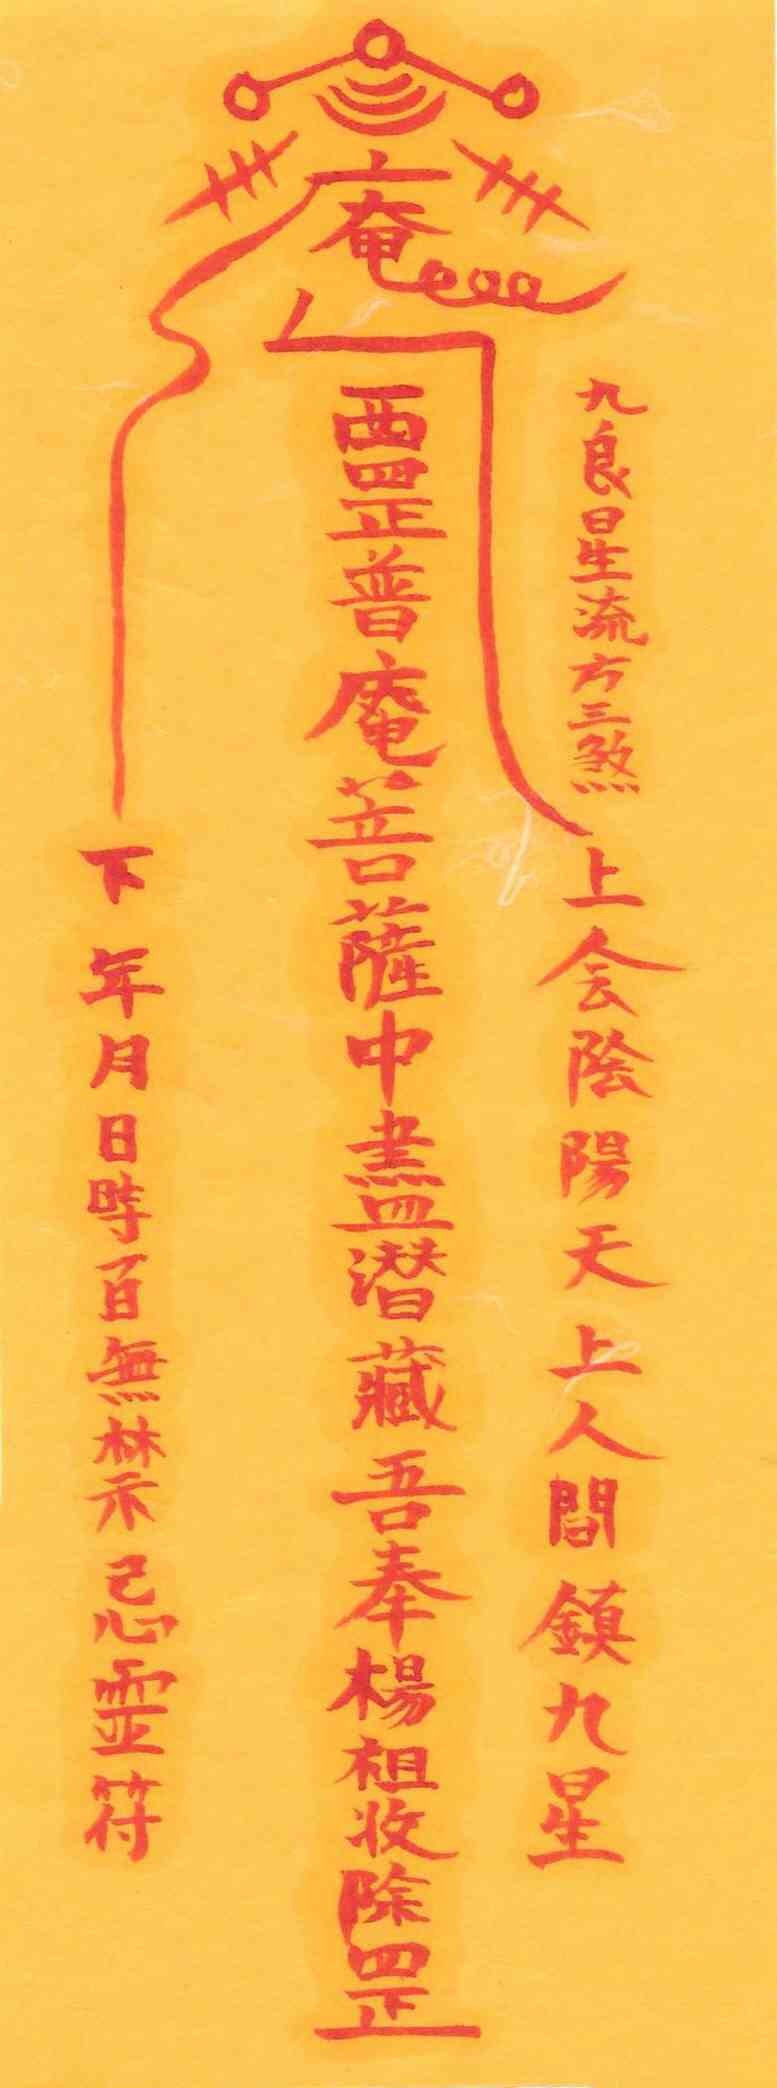 庵
九良星流方三煞
上会陰陽天上人間鎮九星
西罡普庵菩薩中盡潜藏吾奉楊祖收除罡
下年月日時百無禁忌霊符